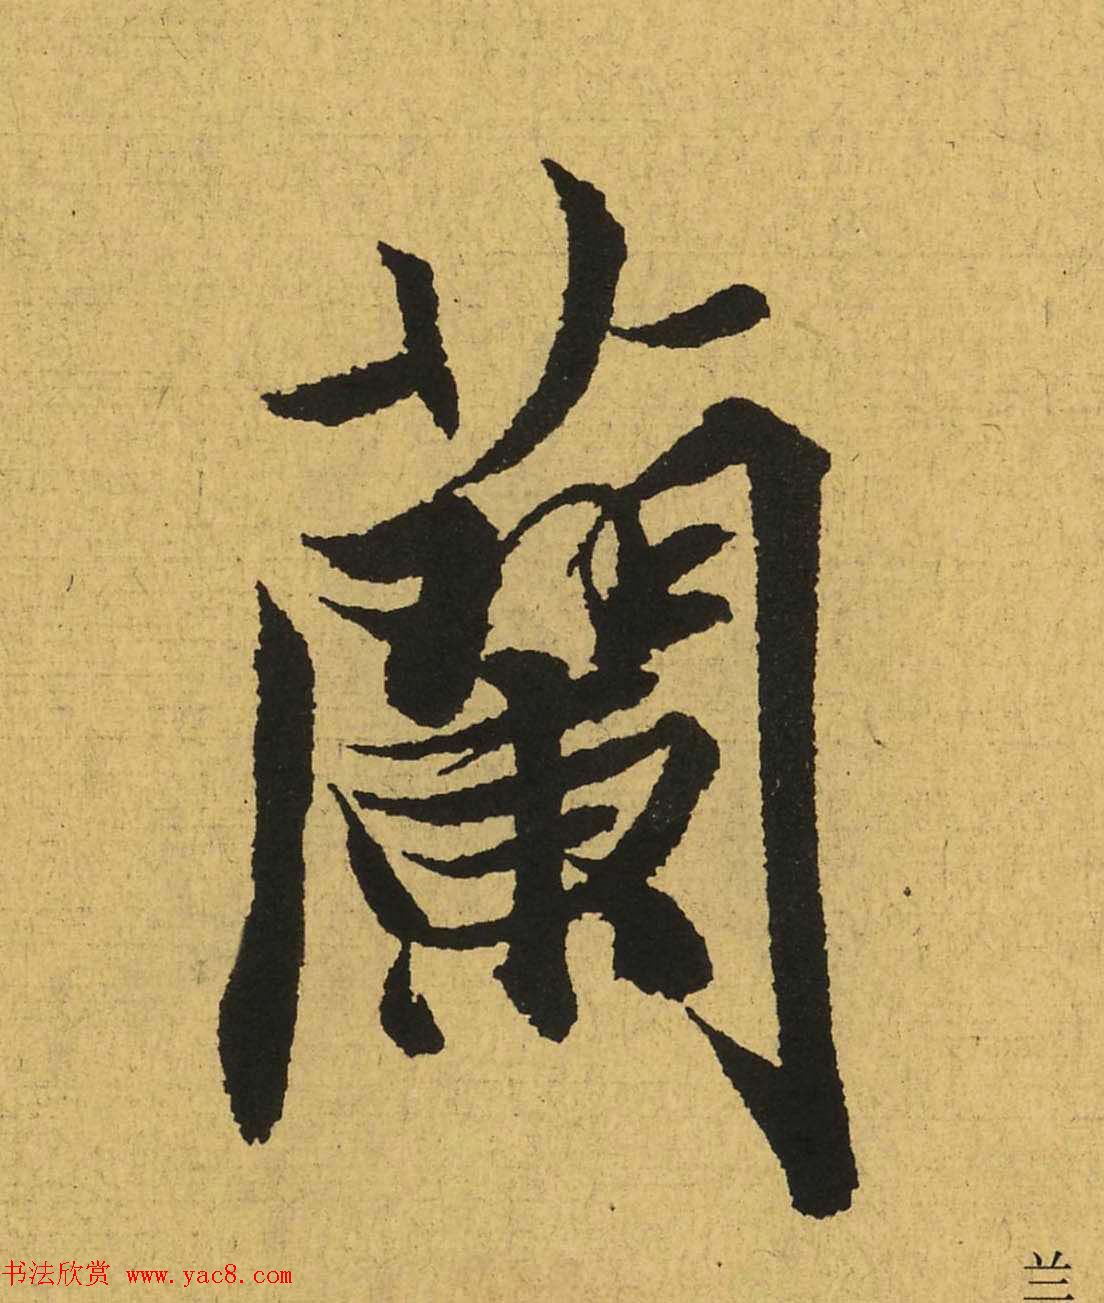 蘭
书法欣赏 www.yac8.com
兰